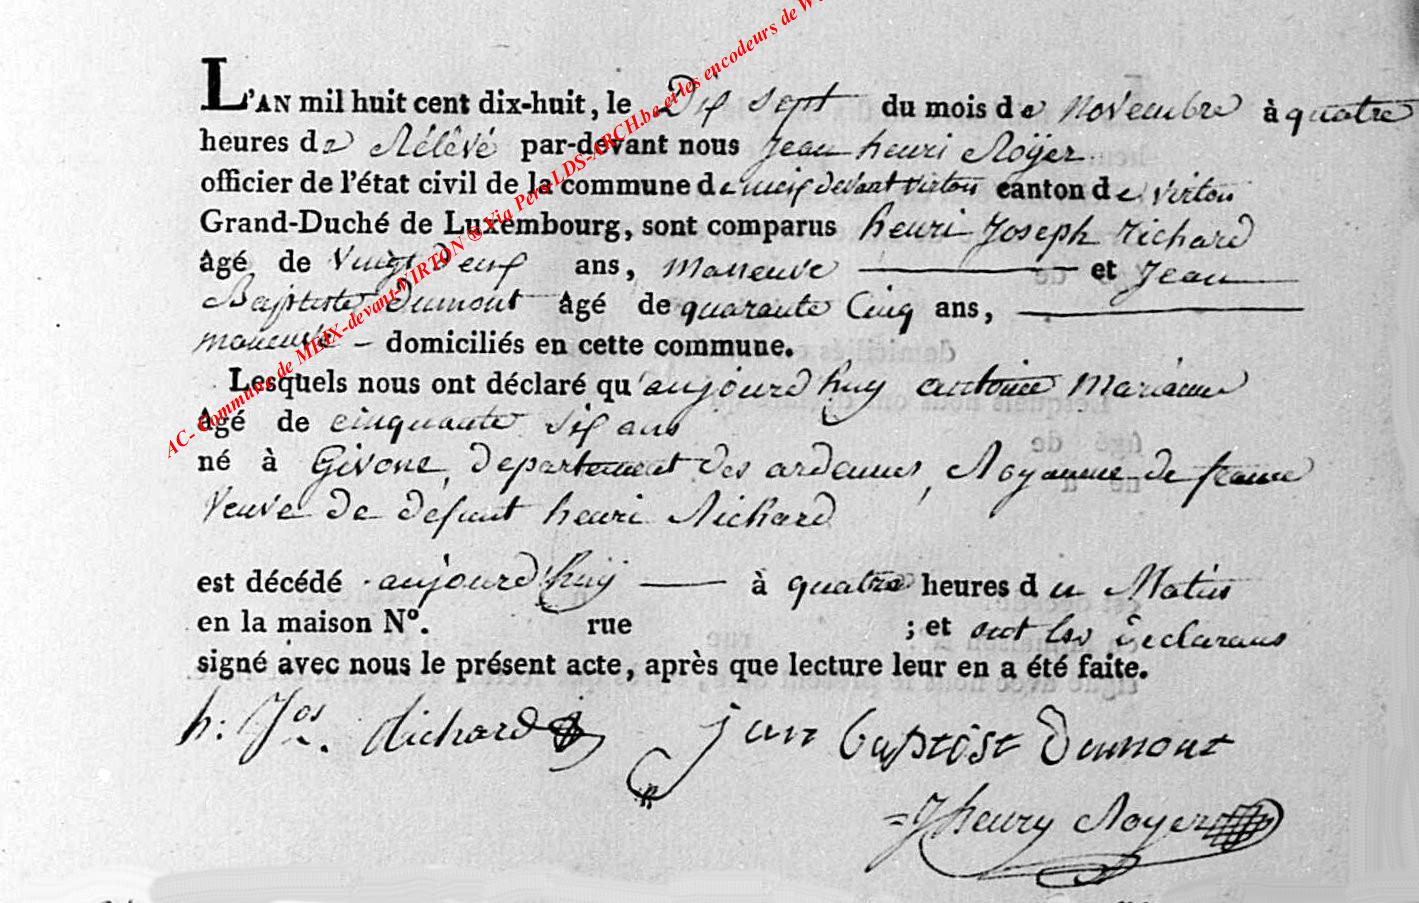 L'AN mil huit cent dix-huit, le Dix sept du mois de Novembre à quatre
heures de Rélévé par-devant nous Jean henri Roÿer
officier de l'état civil de la commune de meix devant virton canton de virton
Grand-Duché de Luxembourg, sont comparus henri Joseph Richard
âgé de Vingt Neuf ans, Maneuvre et Jean
Baptiste Dumont âgé de quarante Cinq ans,
maneuvre - domiciliés en cette commune.
Lesquels nous ont déclaré qu'aujourd huy antoine Marianne
âgé de cinquante six ans
né à Givone, departement des ardennes, Royaume de france
Veuve de defunt henri Richard
est décédé aujourd'huy à quatre heures du Matin
en la maison N°. rue ; et ont les Declarans
signé avec nous le présent acte, après que lecture leur en a été faite.
h: Jos. Richard jean baptist Dumont
=Jhenry Royer
AC- Commune de MEIX-devant-VIRTON ® Via Pero LDS-ARCH.be et les encodeurs de